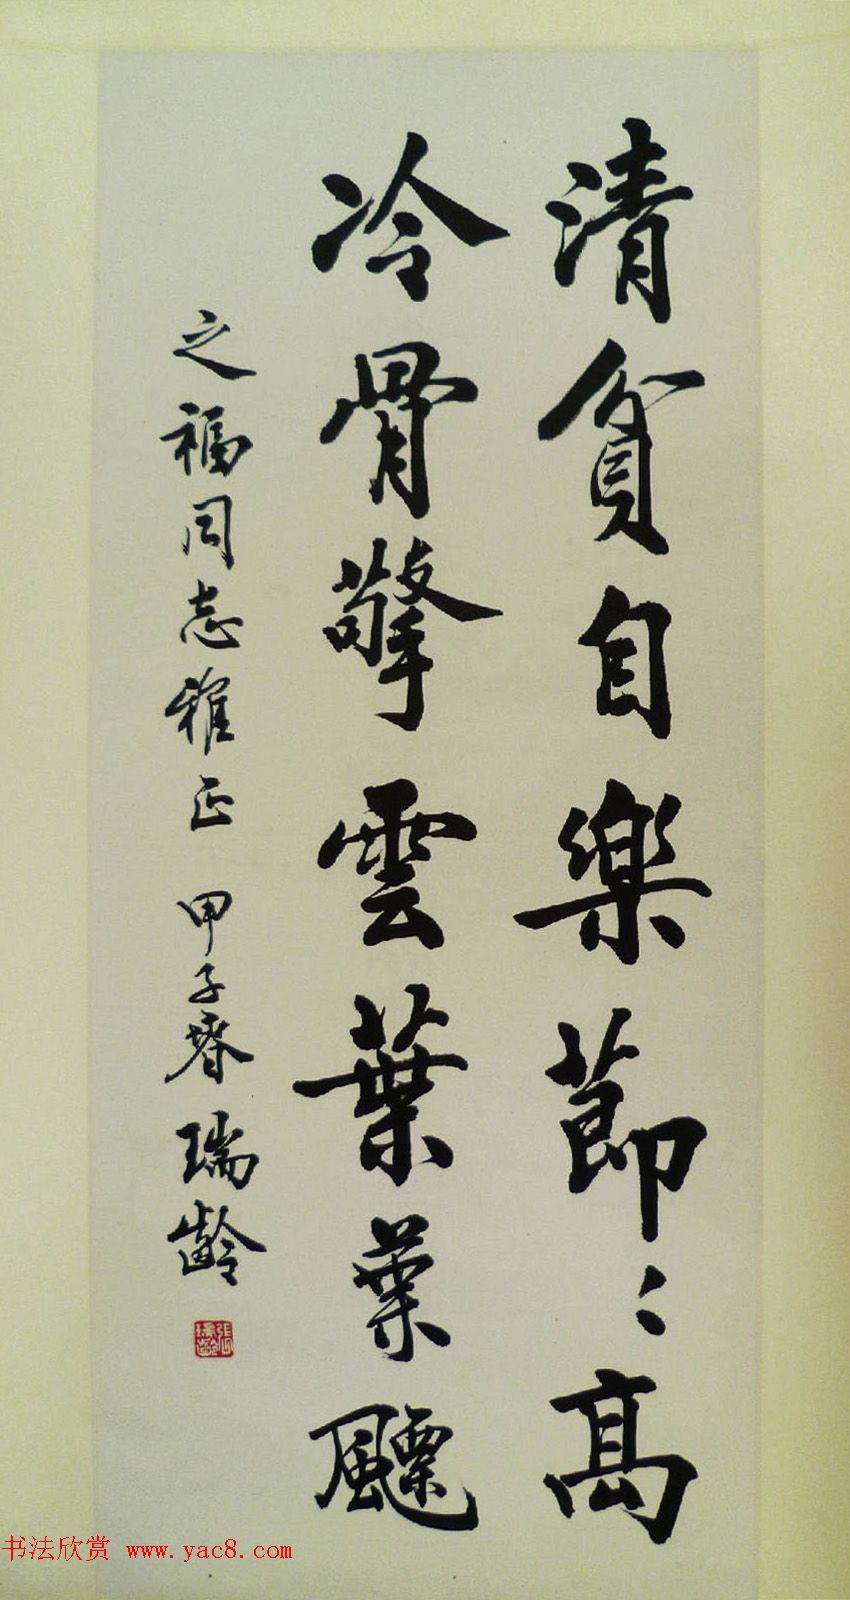 清貧自樂節〻高
冷骨擎雲葉葉飄
之福同志雅正 甲子春 瑞齡
張瑞齡
书法欣赏 www.yac8.com